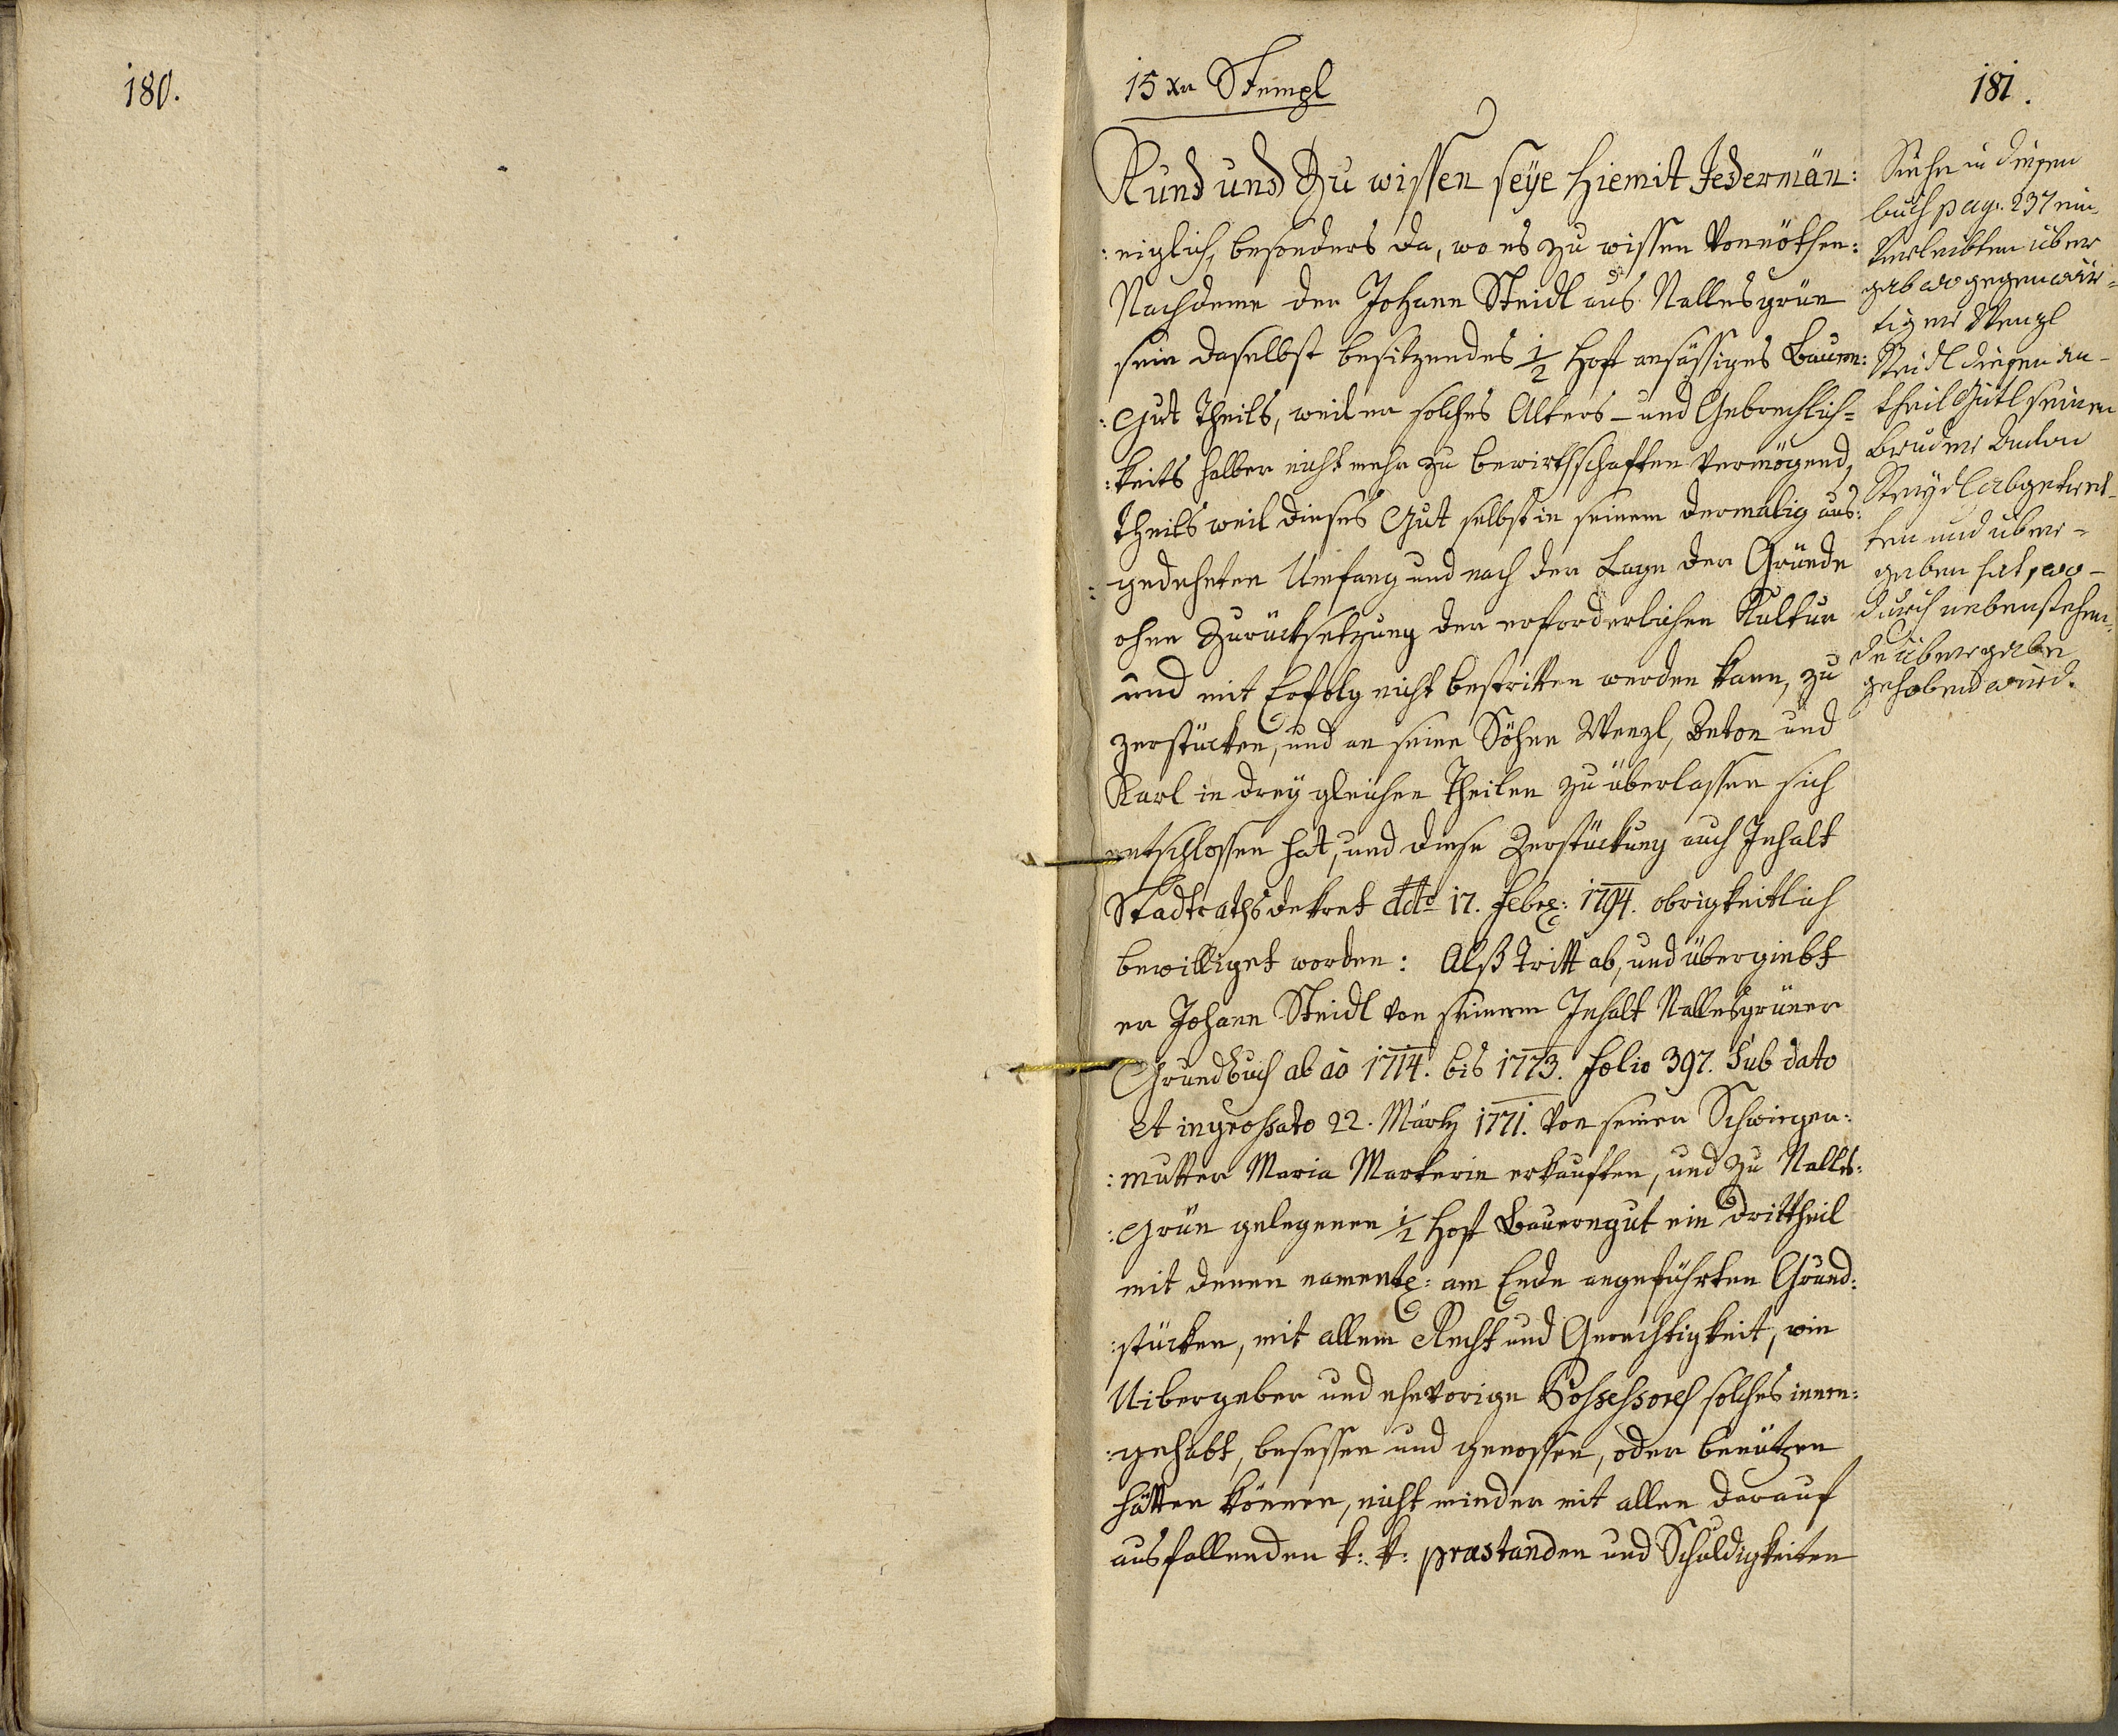 180.
15 xr Stempl
181.
Kund und Zu wissen seÿe hiemit Jedermän:
:niglich, besonders da, wo es zu wissen vonnöthen:
Nachdeme der Johann Steidl aus Nallesgrün
sein daselbst besitzendes 1/2 Hoft ansässiges Bauern:
:Gut theils, weil er solches Alters- und Gebrechlich=
:keits halber nicht mehr zu bewirthschaften vermögend,
theils weil dieses Gut selbst in seinem dermalig aus:
:gedehnten Umfang und nach der Lage der Gründe
ohne Zurücksetzung der erforderlichen Kultur
und mit Erfolg nicht bestritten werden kann, zu
zerstücken, und an seine Söhne Wenzl, Anton und
Karl in dreÿ gleichen Theilen zu überlassen sich
entschlossen hat, und diese Zerstückung auch Inhalt
Stadtrathsdekret ddto 17. Febr: 1794. obrigkeitlich
bewilliget worden: Alß tritt ab, und übergiebt
er Johann Steidl von seinem Inhalt Nallesgrüner
Grundbuch ab ao 1714. bis 1773. folio 397. Sub dato
et ingrossato 22. Märtz 1771. von seiner Schwieger:
:mutter Maria Markerin erkauften, und zu Nalles:
:grün gelegenen 1/2 Hoft Bauerngut ein Drittheil
mit denen namentl: am Ende angeführten Grund:
:stücken, mit allem Recht und Gerechtigkeit, wie
Uibergeber und ehevorige Possessores solches innen:
:gehabt, besessen und genossen, oder benützen
hätten können, nicht minder mit allen darauf
ausfallenden k: k: præstanden und Schuldigkeiten
Siehe in diesen
buch pag. 237 ein
verleibten über
gab wo gegenwär=
tiger Wenzl
Steidl diesen An-
theil Gütl seinen
Bruder Anton
Steydl abgetret-
ten und über=
geben hat, wo-
durch nebenstehen=
de übergabe
gehoben wird.